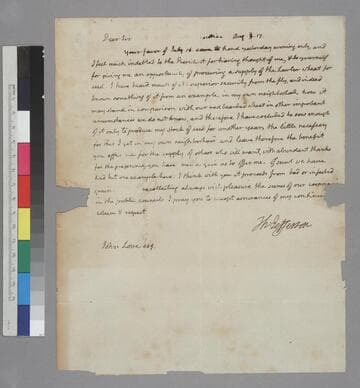 Dear Sir Aug 7. 17.
Your favor of July 16. came to hand yesterday evening only, and
I feel much indebted to the President for having thought of me, & to yourself
for giving me an opportunity of procuring a supply of the Lawler wheat for
seed. I have heard much of it's superior security from the fly, and indeed
known something of it from an example in my own neighborhood. how it
may stand in comparison with our red bearded wheat in other important
circumstances we do not know, and therefore I have concluded to sow enough
of it only to produce my stock of seed for another year. the little necessary
for this I get in my own neighborhood and leave therefore the benefit
you offer me for the supply of others who will want, with abundant thanks
for the preference you have been so good as to offer me. of smut we have
had but one example here. I think with you it proceeds from bad or infected
grain. recollecting always with pleasure the scenes of our cooperation
in the public councils I pray you to accept assurances of my continued
esteem & respect
Th: Jefferson
John Love esq.